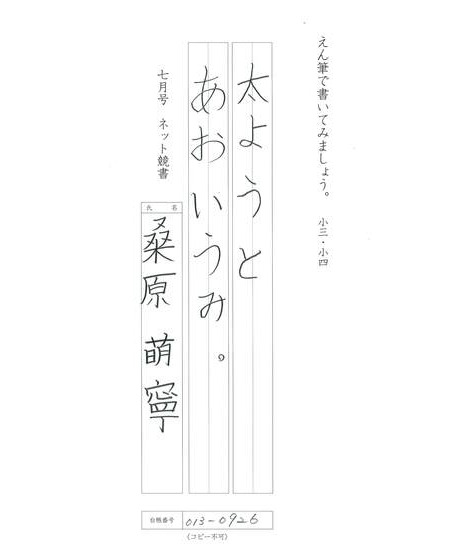 えん筆で書いてみましょう。　小三・小四
太ようと
あおいうみ。
七月号　ネット競書
氏　名
桑原　萌寧
台帳番号　013-0926
(コピー不可)